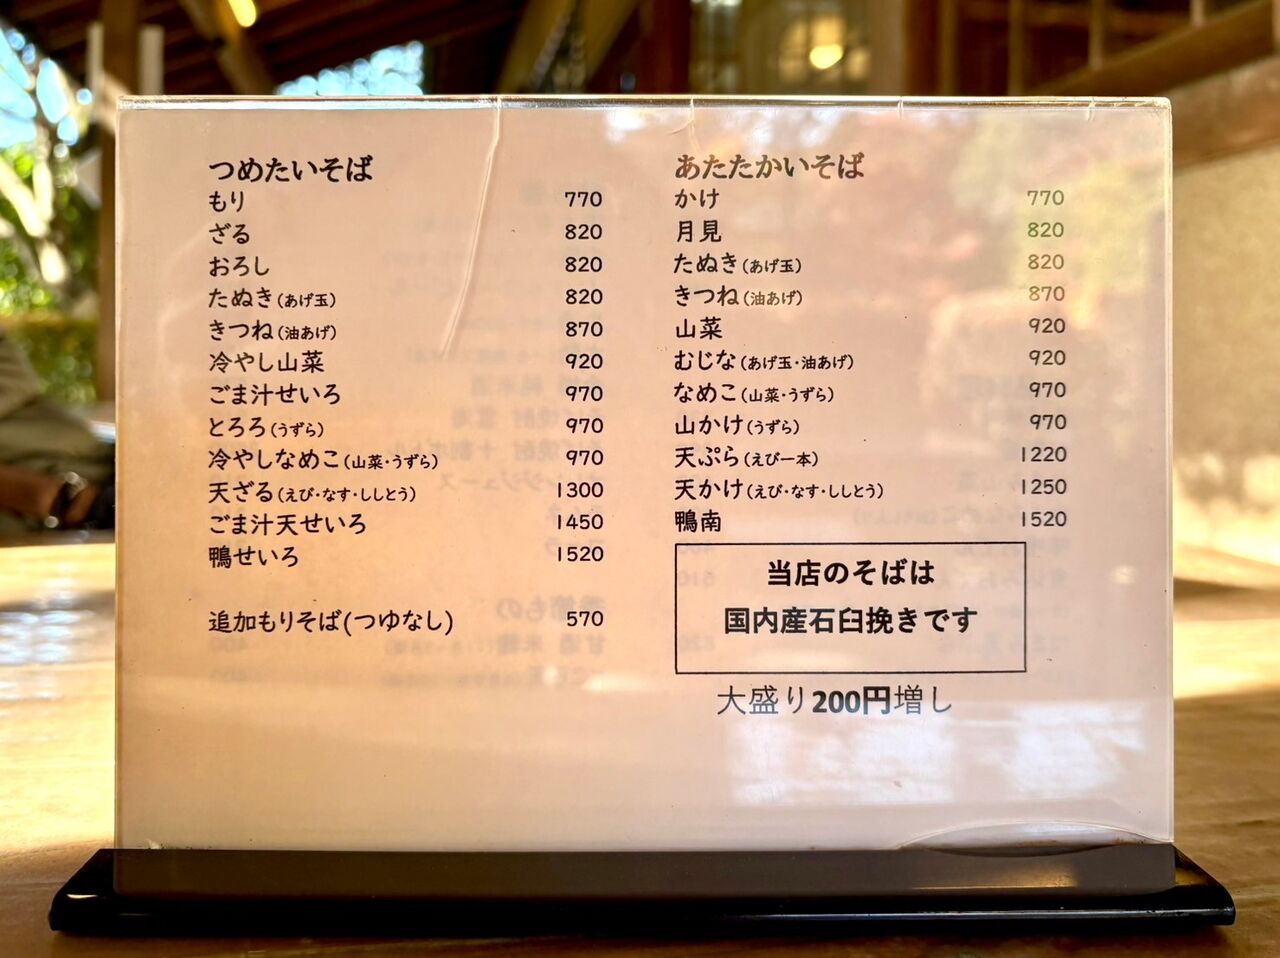 つめたいそば
もり 770
ざる 820
おろし 820
たぬき(あげ玉) 820
きつね(油あげ) 870
冷やし山菜 920
ごま汁せいろ 970
とろろ(うずら) 970
冷やしなめこ(山菜・うずら) 970
天ざる(えび・なす・ししとう) 1300
ごま汁天せいろ 1450
鴨せいろ 1520
追加もりそば(つゆなし) 570
あたたかいそば
かけ 770
月見 820
たぬき(あげ玉) 820
きつね(油あげ) 870
山菜 920
むじな(あげ玉・油あげ) 920
なめこ(山菜・うずら) 970
山かけ(うずら) 970
天ぷら(えび一本) 1220
天かけ(えび・なす・ししとう) 1250
鴨南 1520
当店のそばは
国内産石臼挽きです
大盛り200円増し